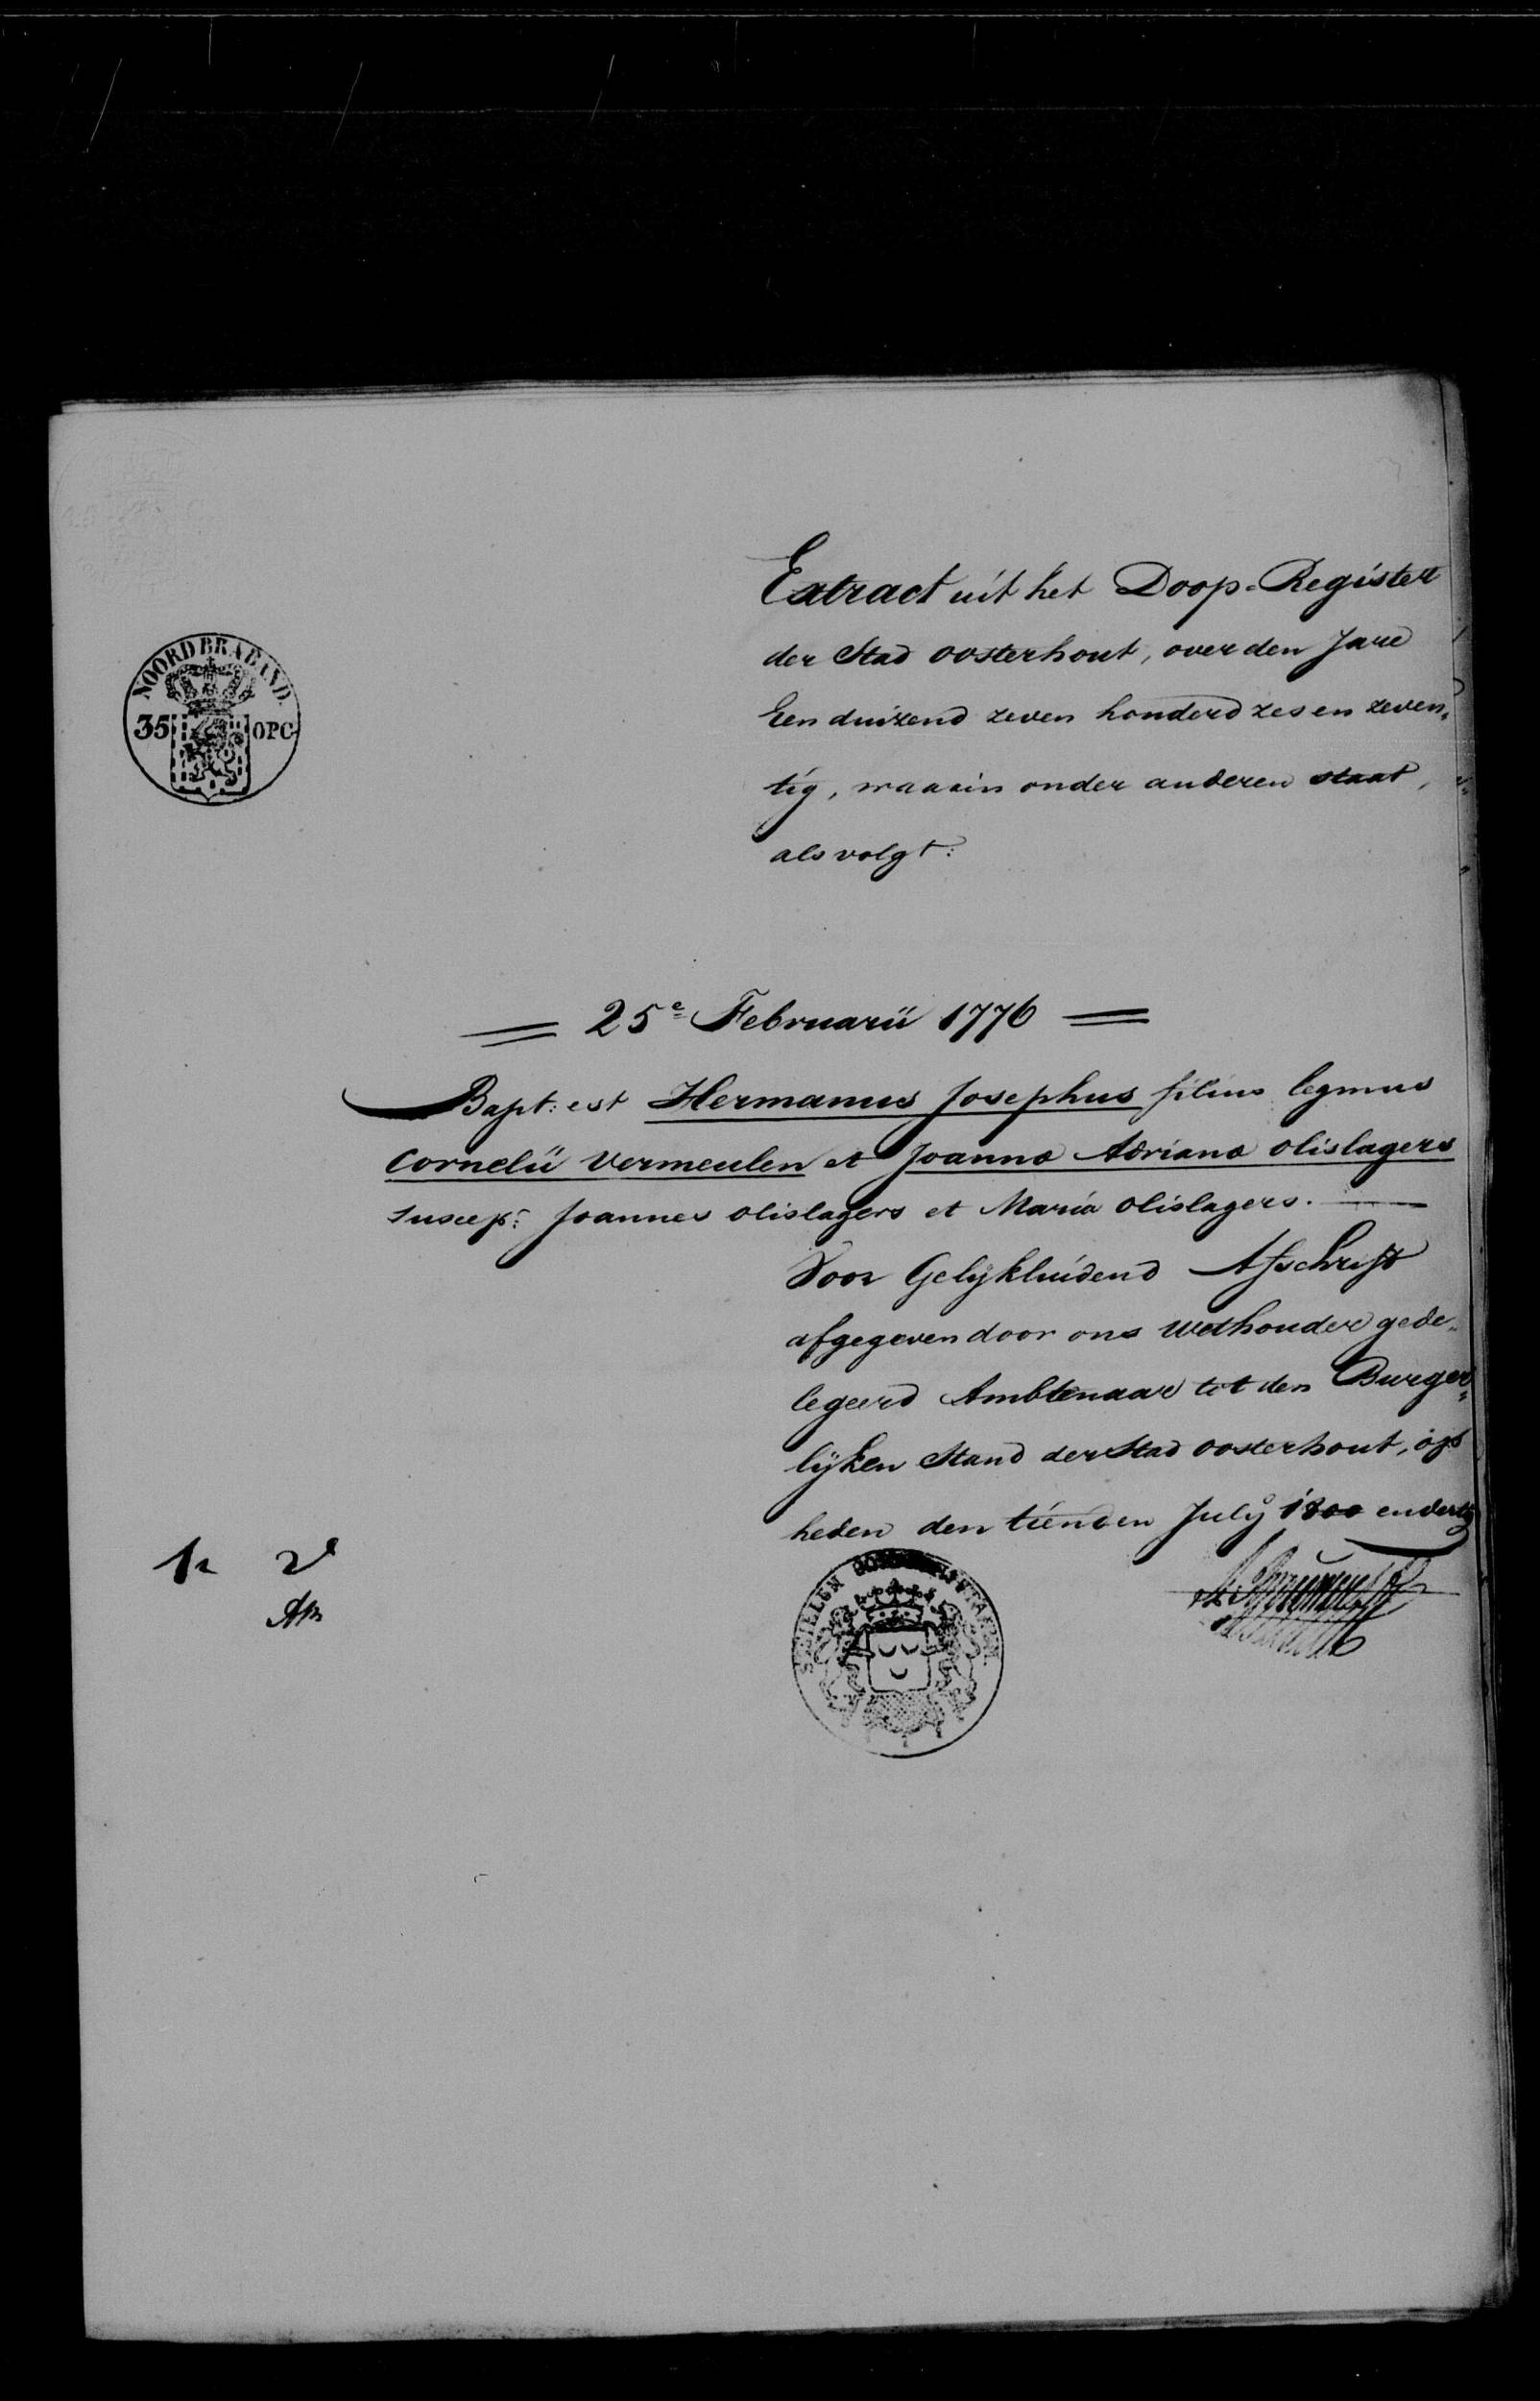 Extract uit het Doop-Register
der Stad oosterhout, over den Jare
Een duizend zeven honderd zes en zeven„
tig, waarin onder anderen staat,
als volgt:
NOORD BRABAND
35 OPC
= 25e Februarii 1776 =
Bapt: est Hermanus Josephus filius legmus
Cornelii Vermeulen et Joanna Adriana olislagers
suscep: Joannes olislagers et Maria olislagers.
Voor Gelijkluidend Afschrift
afgegeven door ons wethouder gede„
legeerd Ambtenaar tot den Burger„
lijken Stand der Stad oosterhout, op
heden den tienden July 1800 en dertig